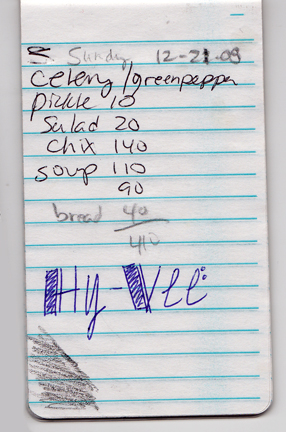 Sunday 12-21-08
Celery/greenpepper
pickle 10
Salad 20
Chix 140
soup 110
90
bread 40
410
Hy-Vee